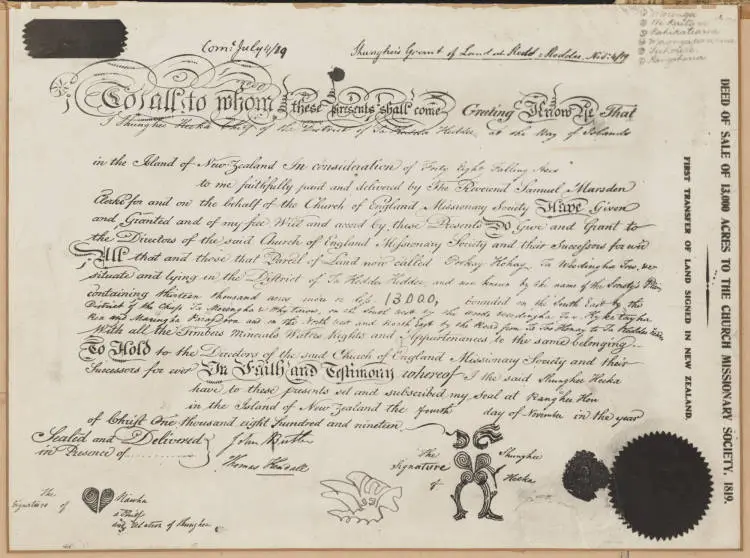 Com: July 4/19
Shunghie's Grant of Land at Kidd Kiddee, Nov: 4/19
To all to whom these presents shall come Greeting Know Ye That
I Shunghee Heeka Chief of the District of Ta Kidda Hidder, at the Bay of Islands
in the Island of New-Zealand In consideration of Forty Eight Falling Axes
to me faithfully paid and delivered by The Reverend Samuel Marsden
Clerke for and on the behalf of the Church of England Missionary Society Have Given
and Granted and of my free Will and accord by these Presents Do Give and Grant to
the Directors of the said Church of England Missionary Society and their Successors for ever
All that and those that Parcel of Land now called
situate and lying in the District of Ta Hidder Hidder, and now known by the name of the Society's
containing thirteen thousand acres more or less 13,000, bounded on the South East by the
District of the Chiefs Ta Morenga & on the South West by the Woods
and on the North West and North East by the Road from
With all the Timbers Minerals Waters Rights and Appurtenances to the same belonging
To Hold to the Directors of the said Church of England Missionary Society and their
Successors for ever In Faith and Testimony whereof I the said Shunghee Heeka
have to these presents set and subscribed my Seal at Ranghee Hou
in the Island of New Zealand the fourth day of November in the year
of Christ One thousand eight hundred and nineteen
Sealed and Delivered
in Presence of
John Butler
Thomas Kendall
The Signature of
Shunghee Heeka
The Signature of
a Chief
and relation of Shunghee
DEED OF SALE OF 13,000 ACRES TO THE CHURCH MISSIONARY SOCIETY, 1819.
FIRST TRANSFER OF LAND SIGNED IN NEW ZEALAND.